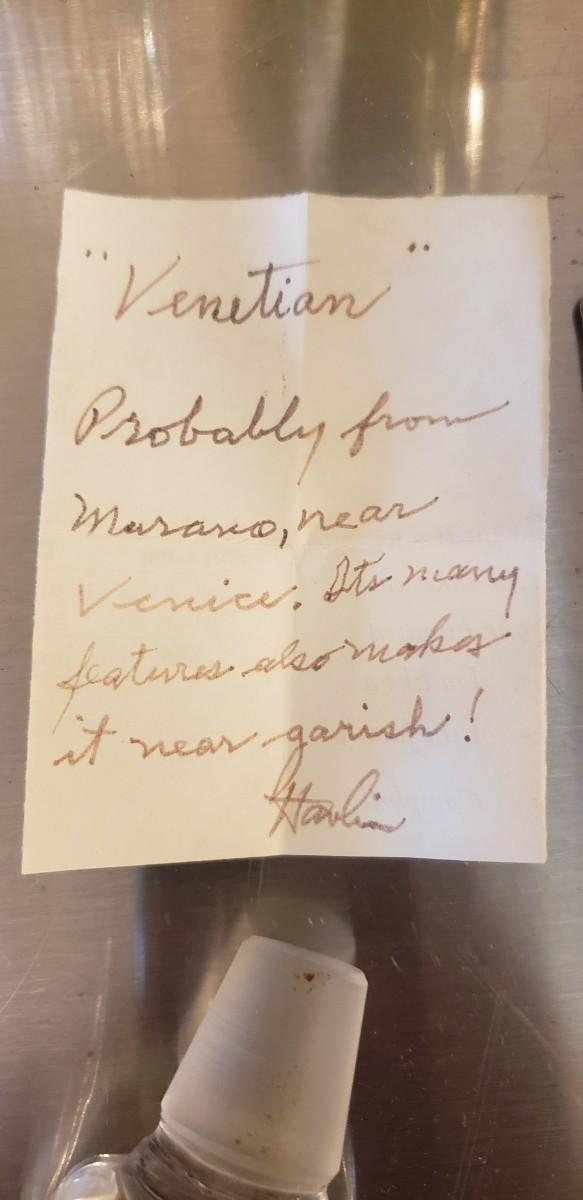 "Venetian"
Probably from
Murano, near
Venice. Its many
features also makes
it near garish!
Havlin